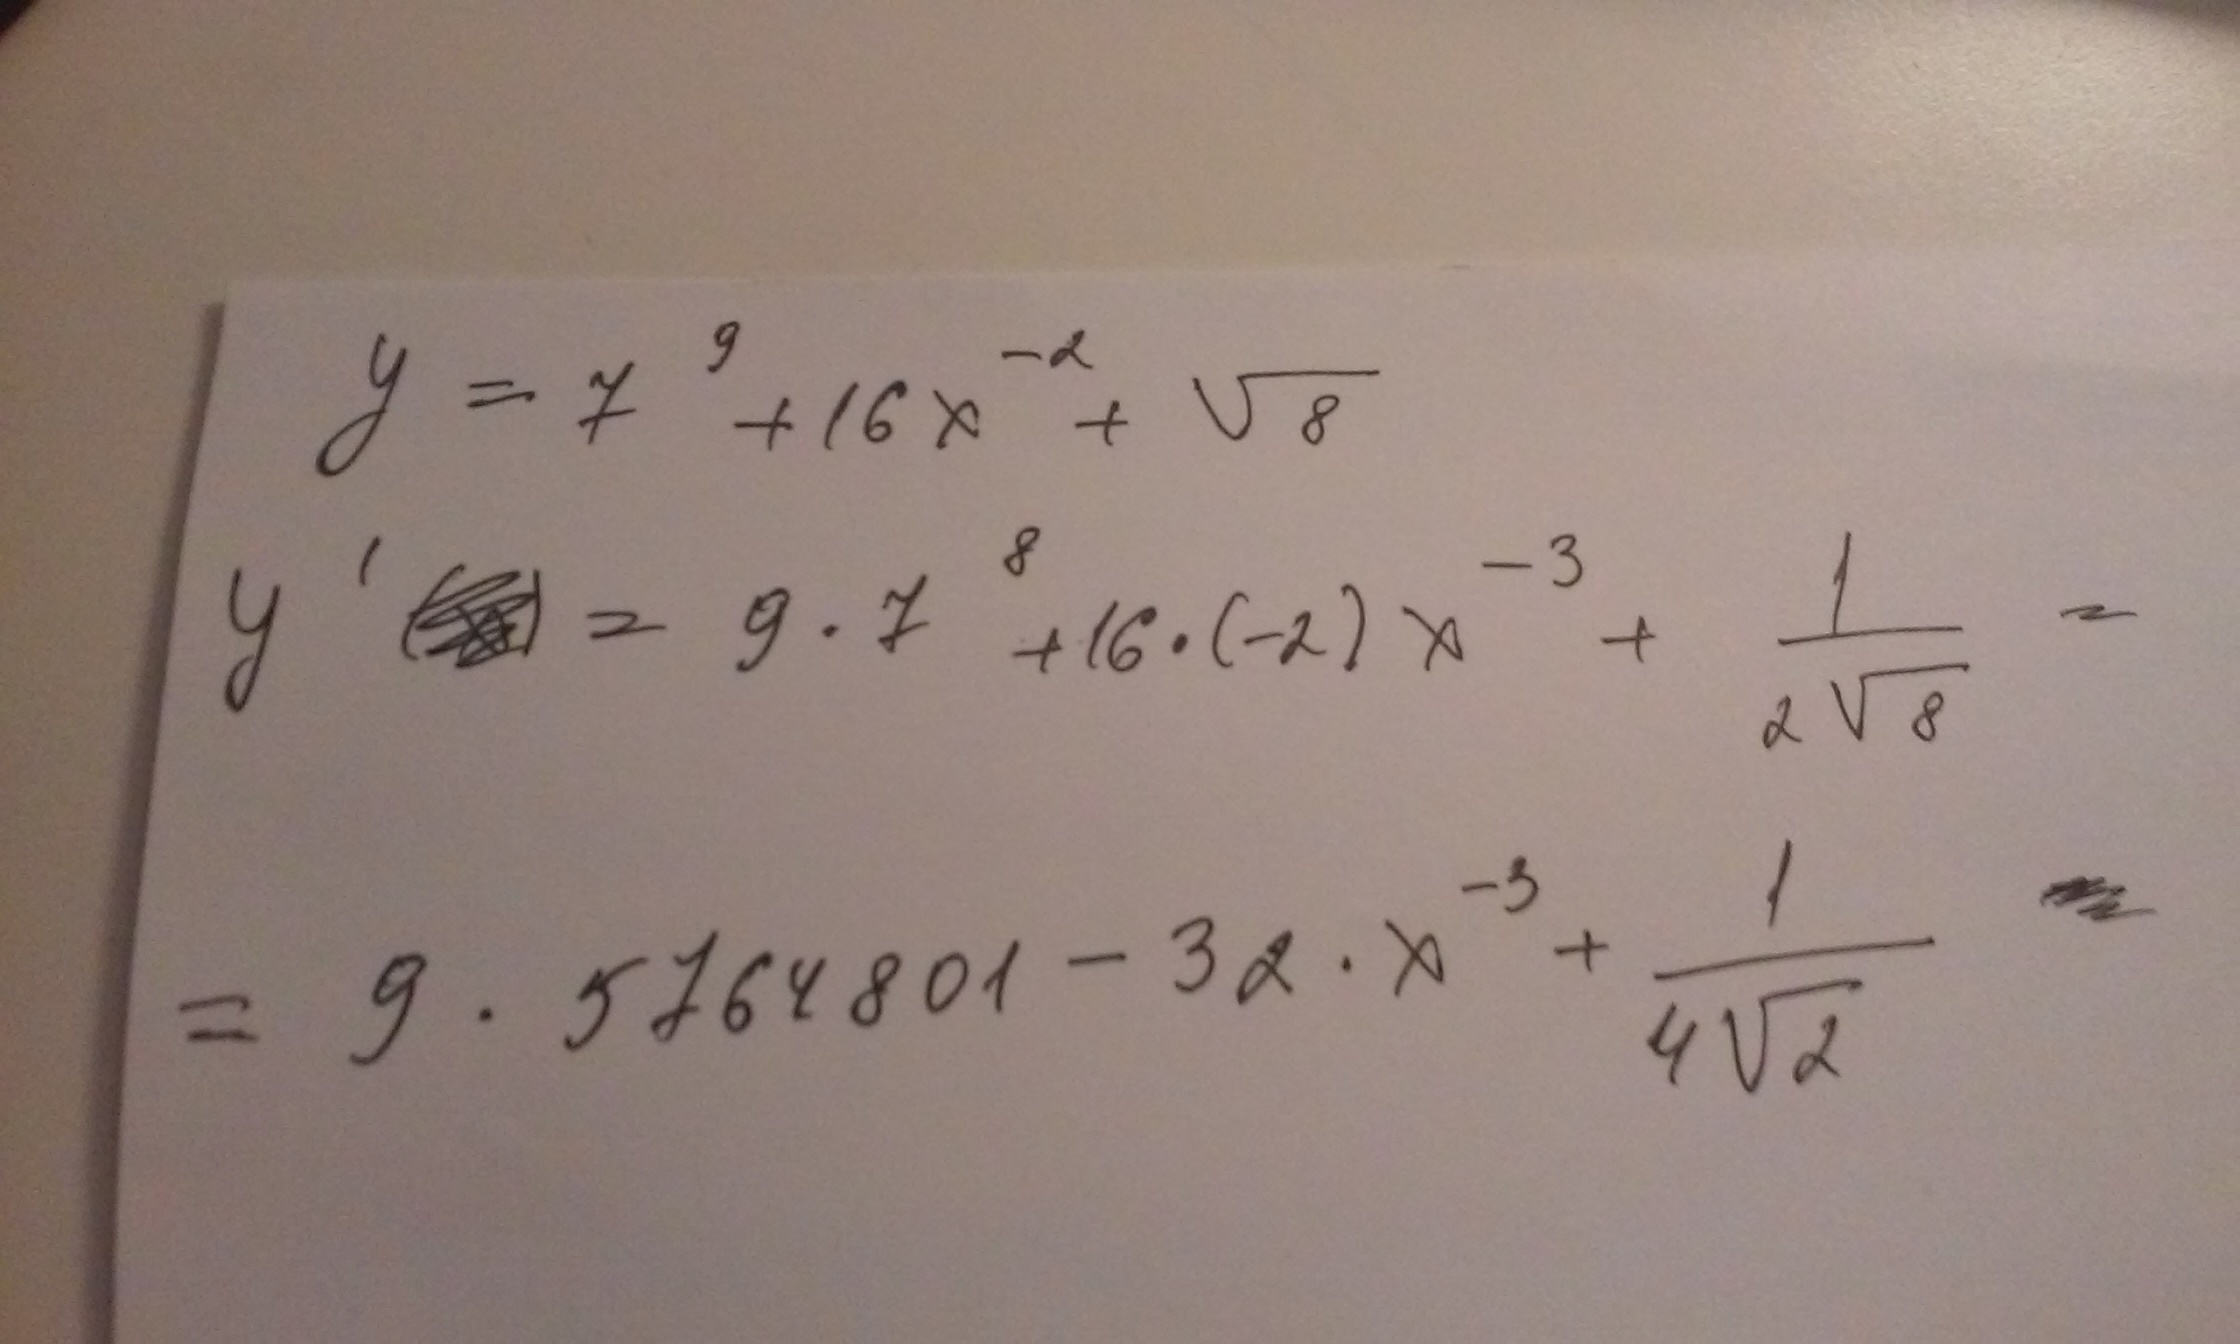 y = 7⁹ + 16x⁻² + √8
y' = 9 · 7⁸ + 16 · (-2) x⁻³ + 1/(2√8) =
= 9 · 5764801 - 32 · x⁻³ + 1/(4√2)